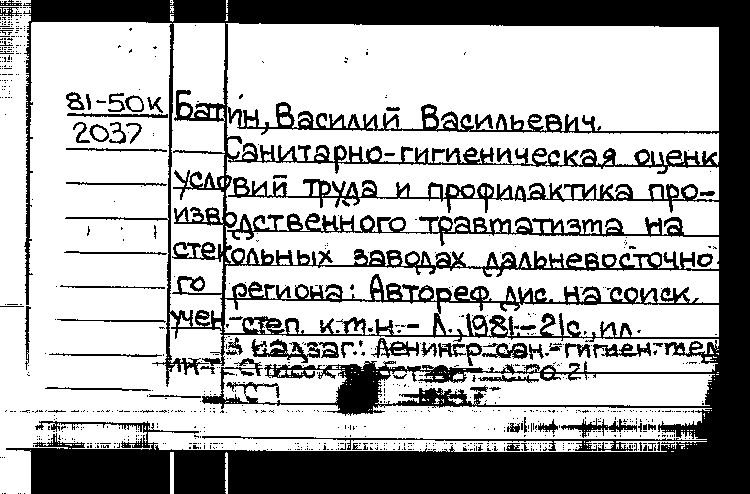 81-50К
2037
Батин, Василий Васильевич.
Санитарно-гигиеническая оценк
условий труда и профилактика про-
изводственного травматизма на
стекольных заводах дальневосточно-
го региона: Автореф. дис. на соиск.
учен. степ. к.м.н. - Л., 1981. - 21с., ил.
В надзаг.: Ленингр. сан.-гигиен. мед.
ин-т. Список работ авт.: с.20-21.